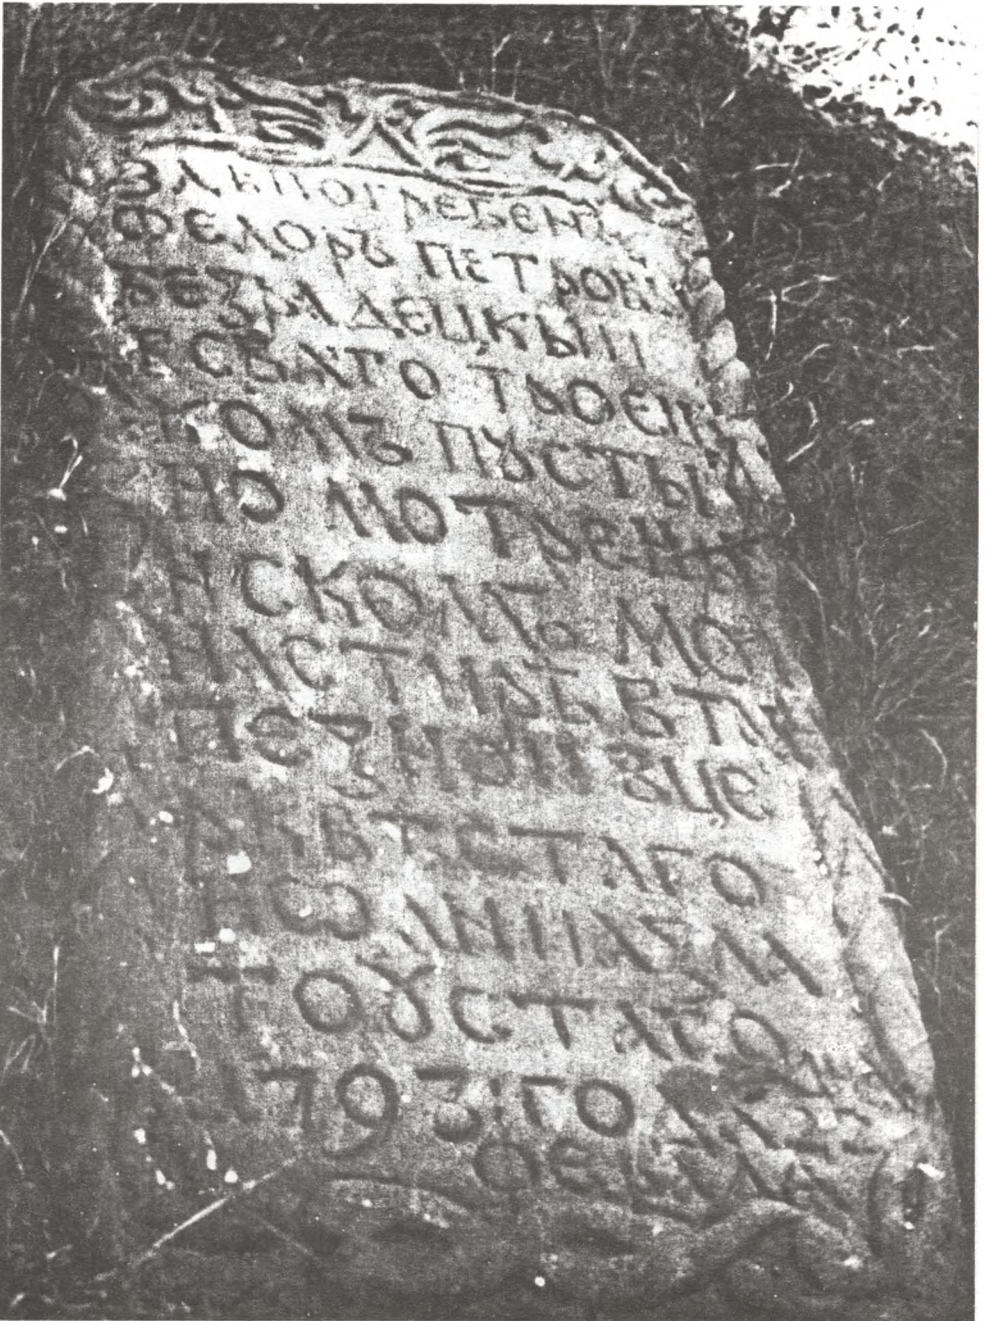 ЗДЕ ПОГРЕБЕНЪ
ФЕДОРЪ ПЕТРОВ
БЕЗРАДЕЦКЫИ
ЕСВАТО ТРОЕЦ
КОМЪ ПꙊСТЫН
НО МОТРЕН
НСКОМЪ МО
НАСТИРѢ ВТРА
ПЕЗНꙊИ ꙊЦЕ
РКВЕ СТАГО
ІѠАННА ЗЛА
ТОꙊСТАГО
1793: ГОДА
ФЕВРАЛ